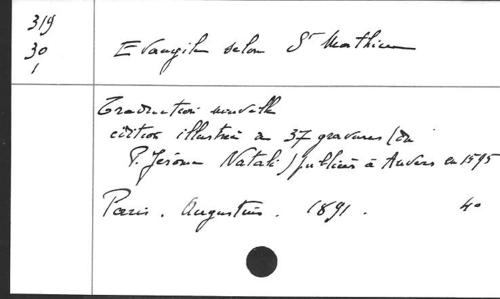 319
30
1
Evangile selon St Mathieu
Traduction nouvelle
édition illustrée de 37 gravures (du
P. Jérôme Natali) publiées à Anvers en 1595
Paris. Augustins. 1891. 4o